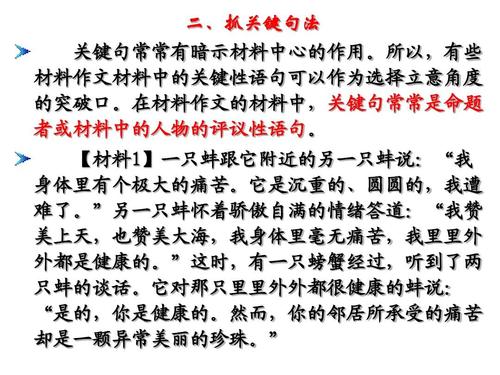 二、抓关键句法
关键句常常有暗示材料中心的作用。所以，有些
材料作文材料中的关键性语句可以作为选择立意角度
的突破口。在材料作文的材料中，关键句常常是命题
者或材料中的人物的评议性语句。
【材料1】一只蚌跟它附近的另一只蚌说：“我
身体里有个极大的痛苦。它是沉重的、圆圆的，我遭
难了。”另一只蚌怀着骄傲自满的情绪答道：“我赞
美上天，也赞美大海，我身体里毫无痛苦，我里里外
外都是健康的。”这时，有一只螃蟹经过，听到了两
只蚌的谈话。它对那只里里外外都很健康的蚌说：
“是的，你是健康的。然而，你的邻居所承受的痛苦
却是一颗异常美丽的珍珠。”